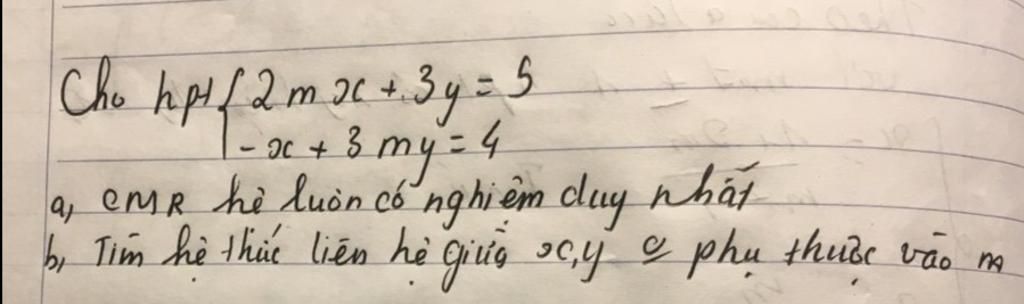 Cho hpt { 2mx + 3y = 5
- x + 3my = 4
a, CMR hệ luôn có nghiệm duy nhất
b, Tìm hệ thức liên hệ giữa x, y phụ thuộc vào m